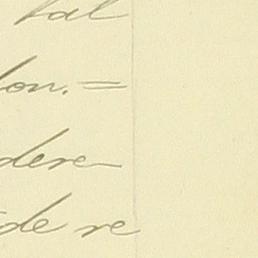 tal
lon. =
dere
de re